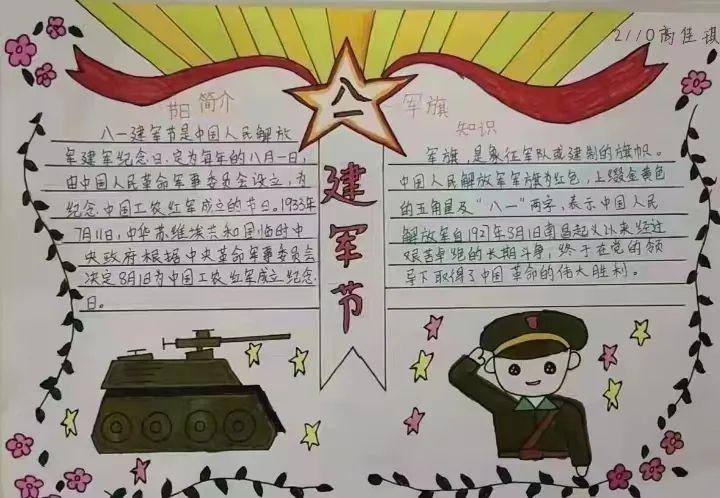 2110高佳琪
八一
建军节
节日简介
八一建军节是中国人民解放
军建军纪念日,定为每年的八月一日,
由中国人民革命军事委员会设立,为
纪念中国工农红军成立的节日。1933年
7月11日,中华苏维埃共和国临时中
央政府根据中央革命军事委员会
决定8月1日为中国工农红军成立纪念
日。
军旗
知识
军旗,是象征军队或建制的旗帜。
中国人民解放军军旗为红色,上缀金黄色
的五角星及“八一”两字,表示中国人民
解放军自1927年8月1日南昌起义以来经过
艰苦卓绝的长期斗争,终于在党的领
导下取得了中国革命的伟大胜利。